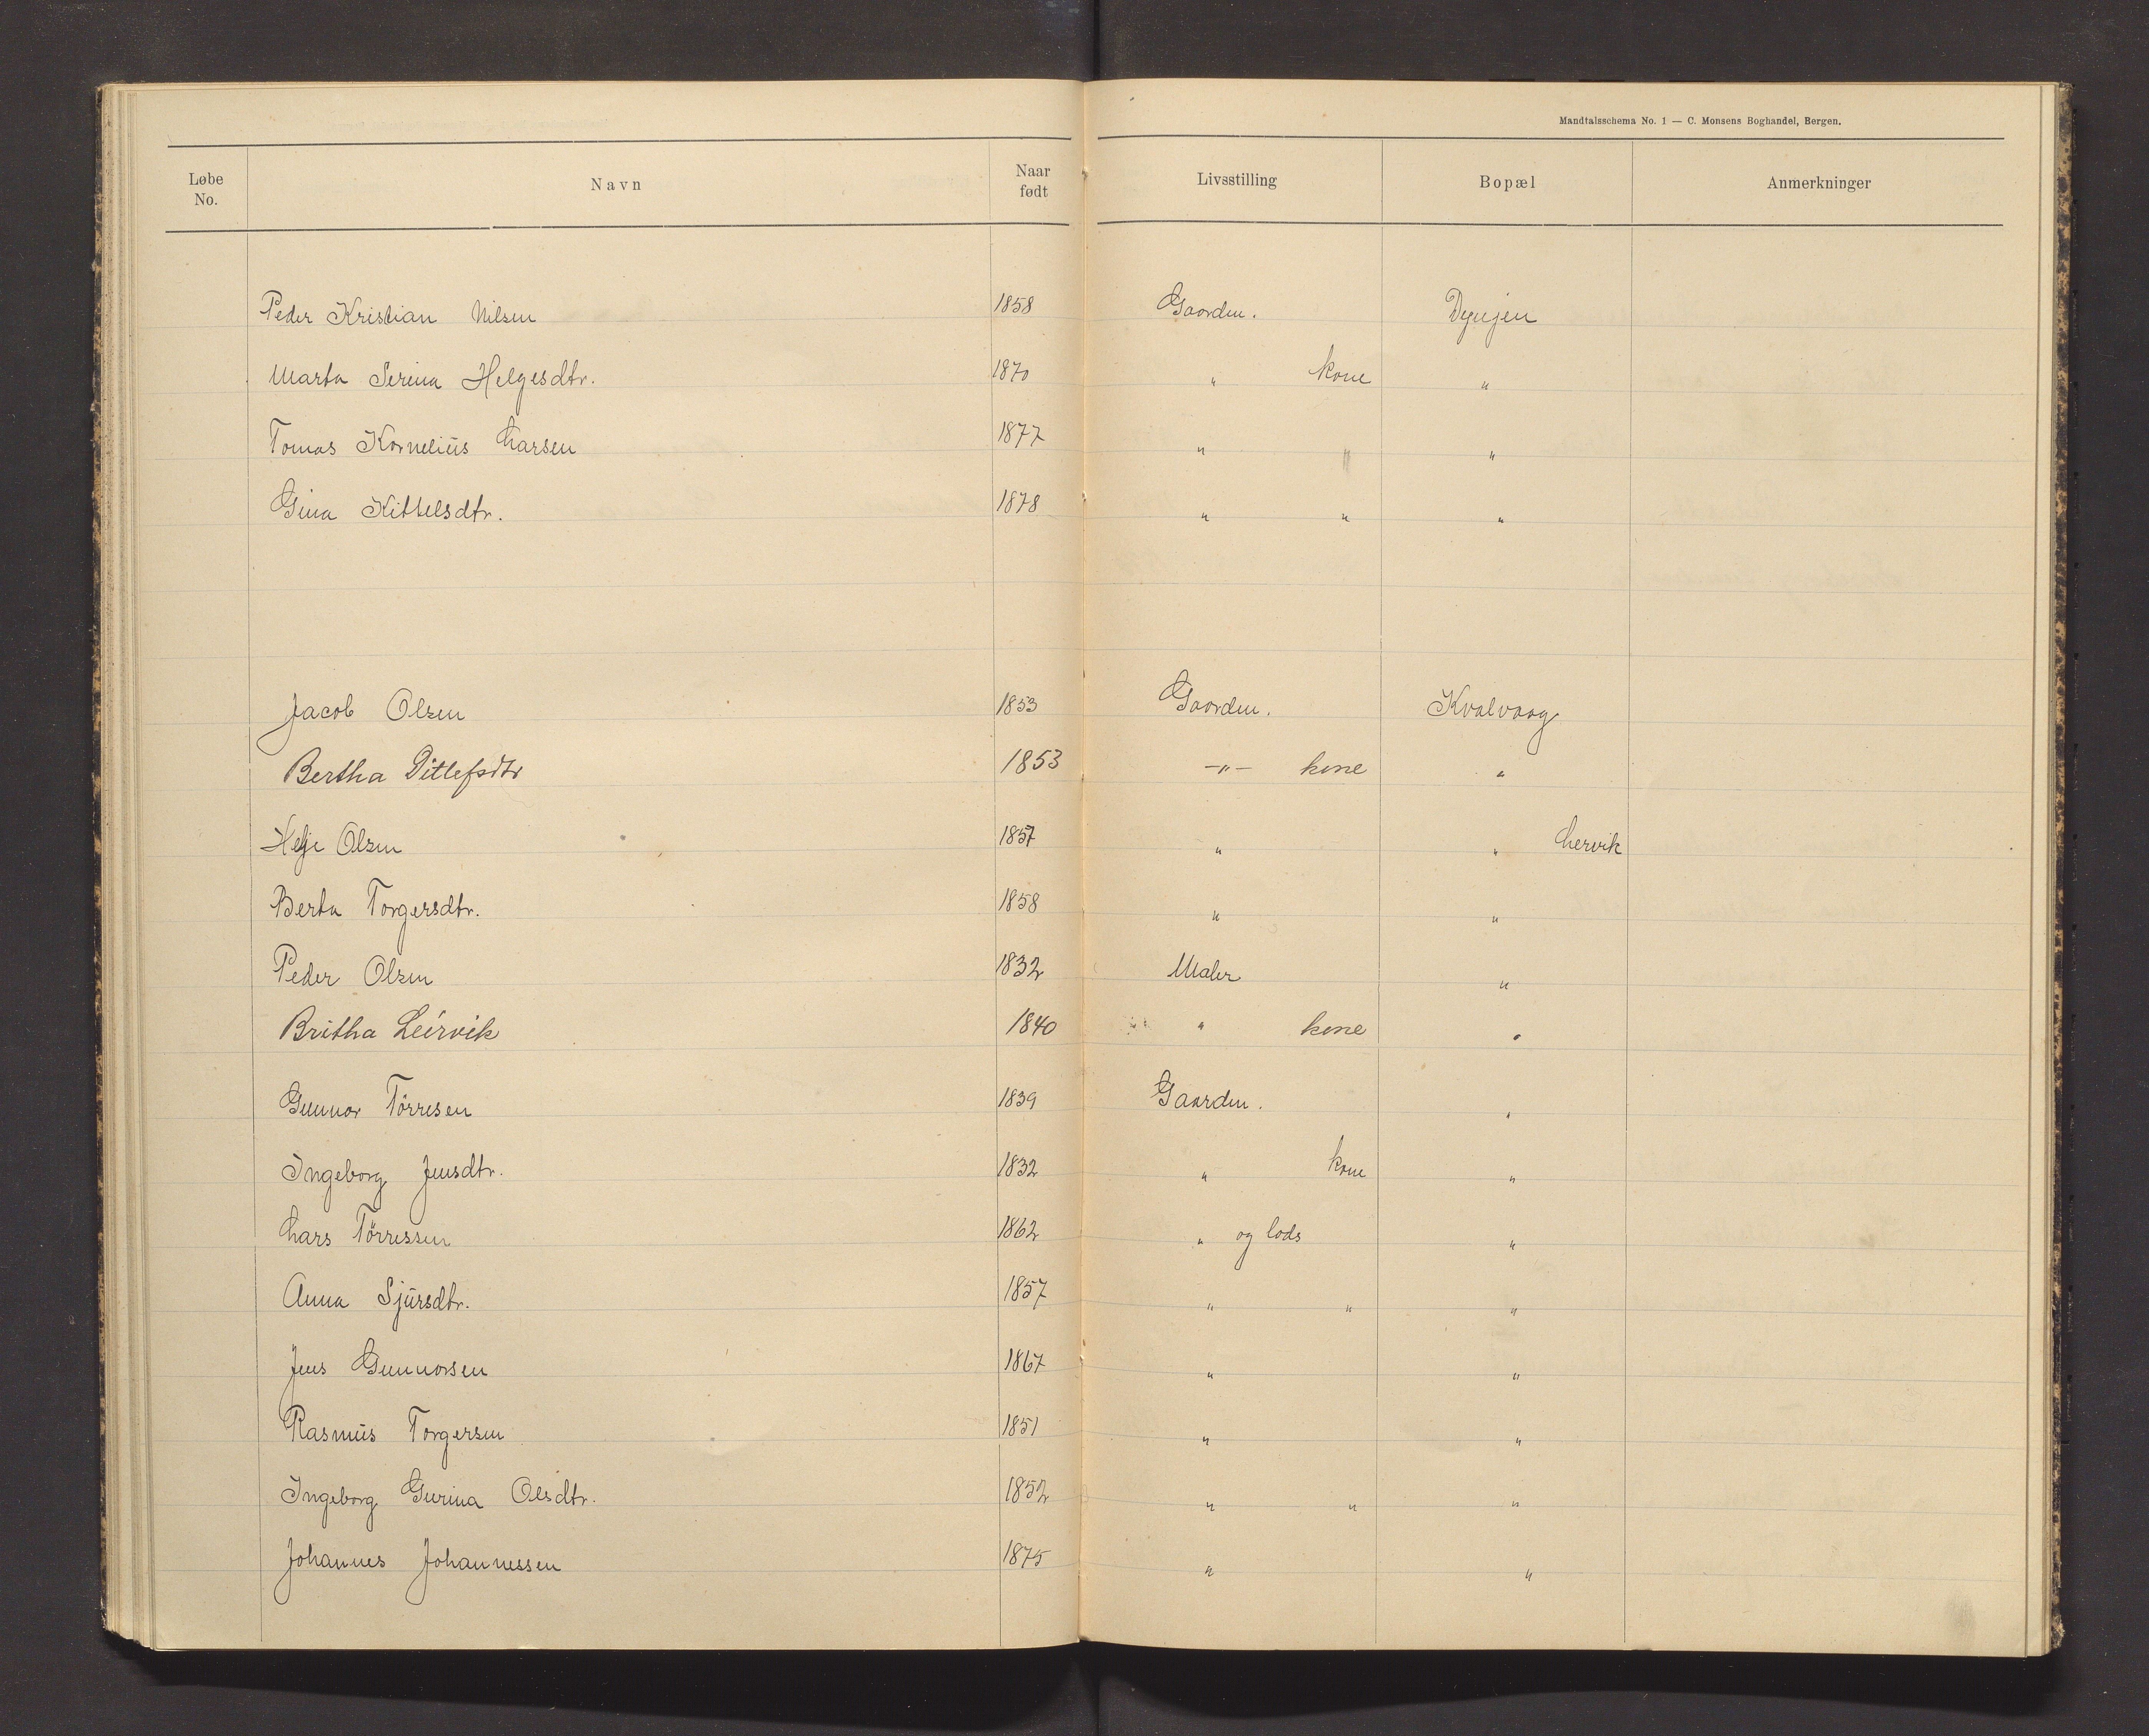 Mandtalsschema No. 1 — C. Monsens Boghandel, Bergen.
Løbe No. Navn Naar født Livsstilling Bopæl Anmerkninger
Peder Kristian Nilsen 1858 Gaardm. Dynjen
Marta Serina Helgesdtr. 1870 " kone "
Tomas Kornelius Larsen 1877 " " "
Gina Kittelsdtr. 1878 " " "
Jacob Olsen 1853 Gaardm. Kvalvaag
Bertha Ditlefsdtr 1853 —"— kone "
Helje Olsen 1857 " " Lervik
Berta Torgersdtr. 1858 " "
Peder Olsen 1832 Maler "
Britha Leirvik 1840 " kone "
Gunnar Törresen 1839 Gaardm. "
Ingeborg Jensdtr. 1832 " kone "
Lars Törressen 1862 " og lods "
Anna Sjursdtr. 1857 " " "
Jens Gunnarsen 1867 " "
Rasmus Torgersen 1851 " "
Ingeborg Gurina Olsdtr. 1852 " " "
Johannes Johannessen 1875 " "